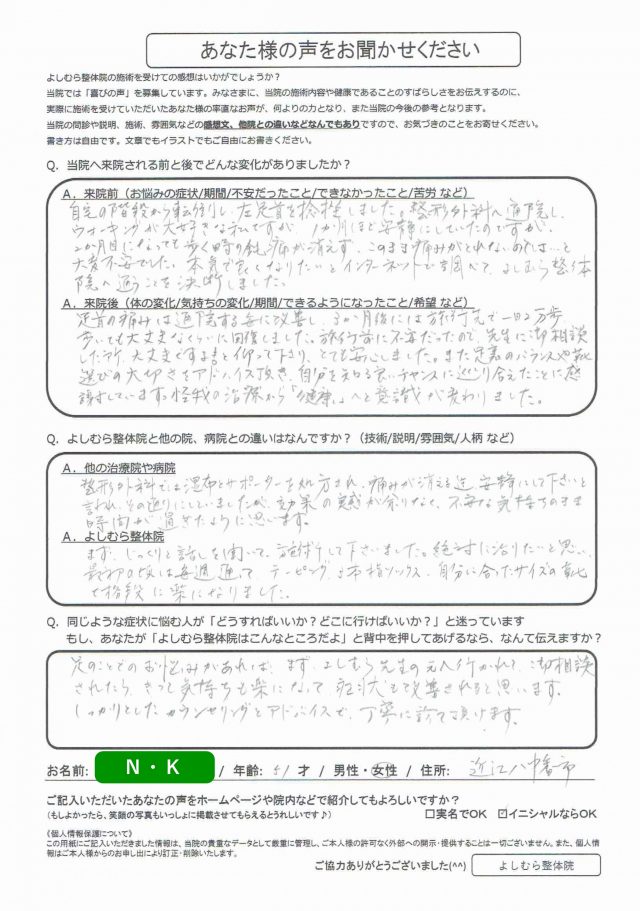 あなた様の声をお聞かせください
よしむら整体院の施術を受けての感想はいかがでしょうか?
当院では「喜びの声」を募集しています。みなさまに、当院の施術内容や健康であることのすばらしさをお伝えするのに、
実際に施術を受けていただいたあなた様の率直なお声が、何よりの力となり、また当院の今後の参考となります。
当院の問診や説明、施術、雰囲気などの感想文、他院との違いなどなんでもありですので、お気づきのことをお寄せください。
書き方は自由です。文章でもイラストでもご自由にお書きください。
Q. 当院へ来院される前と後でどんな変化がありましたか?
A. 来院前(お悩みの症状/期間/不安だったこと/できなかったこと/苦労 など)
自宅の階段から転倒し、左足首を捻挫しました。整形外科へ通院し、
ウォーキングが大好きな私ですが、1か月ほど安静にしていたのですが、
2か月目になっても歩く時の鈍痛が消えず、このまま痛みがとれないのでは…と
大変不安でした。本気で良くなりたいとインターネットで調べて、よしむら整体
院へ通うことを決断しました。
A. 来院後(体の変化/気持ちの変化/期間/できるようになったこと/希望 など)
足首の痛みは通院する毎に改善し、3か月後には旅行先で一日2万歩
歩いても大丈夫なくらいに回復しました。旅行前に不安だったので、先生に御相談
した所、大丈夫ですよ!と仰って下さり、とても安心しました。また足裏のバランスや靴
選びの大切さをアドバイス頂き、自分を知る良いチャンスに巡り合えたことに感
謝しています。怪我の治療から「健康」へと意識が変わりました。
Q. よしむら整体院と他の院、病院との違いはなんですか?(技術/説明/雰囲気/人柄 など)
A. 他の治療院や病院
整形外科では湿布とサポーターを処方され、痛みが消える迄安静にして下さいと
言われ、その通りにしていましたが、効果の実感が余りなく、不安な気持ちのまま
時間が過ぎたように思います。
A. よしむら整体院
まず、じっくりと話しを聞いて、施術して下さいました。絶対に治りたいと思い、
最初の頃は毎週通って、テーピング、5本指ソックス、自分に合ったサイズの靴
で格段に楽になりました。
Q. 同じような症状に悩む人が「どうすればいいか?どこに行けばいいか?」と迷っています
もし、あなたが「よしむら整体院はこんなところだよ」と背中を押してあげるなら、なんて伝えますか?
足のことでのお悩みがあれば、まず、よしむら先生の元へ行かれて、御相談
されたら、きっと気持ちも楽になって、症状も改善されると思います。
しっかりとしたカウンセリングとアドバイスで、丁寧に診て頂けます。
お名前: N・K / 年齢: 51 才 / 男性・女性 / 住所: 近江八幡市
ご記入いただいたあなたの声をホームページや院内などで紹介してもよろしいですか?
(もしよかったら、笑顔の写真もいっしょに掲載させてもらえるとうれしいです♪) □実名でOK ☑イニシャルならOK
《個人情報保護について》
この用紙にご記入いただきました情報は、当院の貴重なデータとして厳重に管理し、ご本人様の許可なく外部への開示・提供することは一切ございません。また、個人情
報はご本人様からのお申し出により訂正・削除いたします。
ご協力ありがとうございました(^^) よしむら整体院